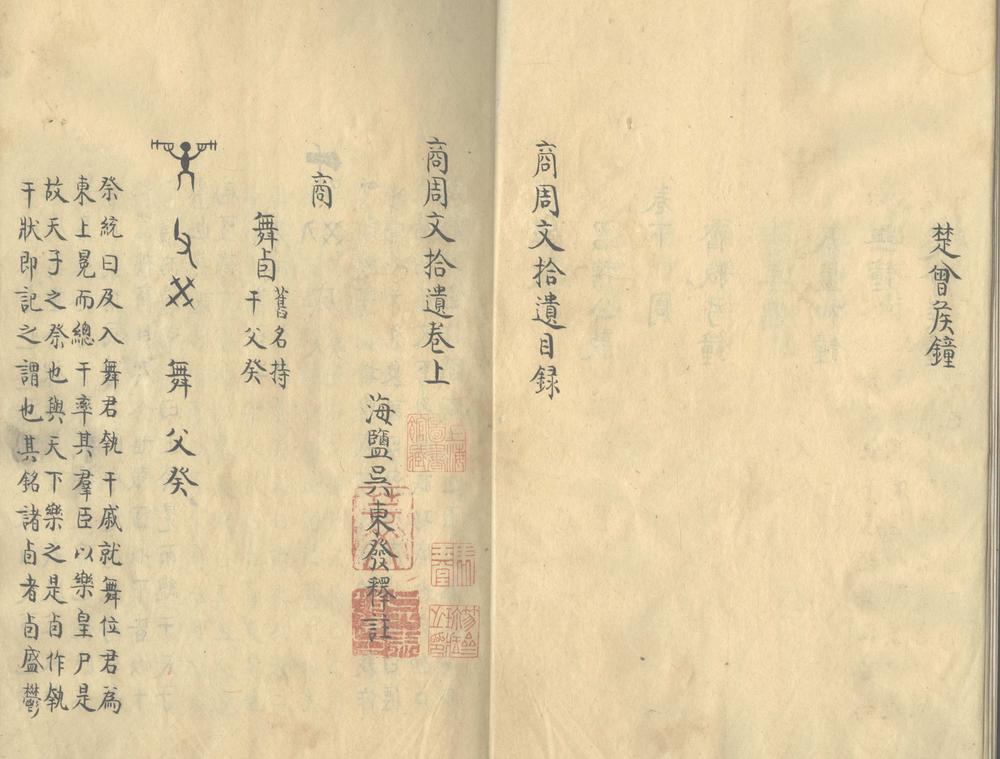 楚曾矦鐘
商周文拾遺目録
商周文拾遺卷上
海鹽吳東發釋註
商
舞卣
舊名持
干父癸
舞父癸
祭統曰及入舞君執干戚就舞位君爲
東上冕而緫干率其羣臣以樂皇尸是
故天子之祭也與天下樂之是卣作執
干狀即記之謂也其銘諸卣者卣盛鬱